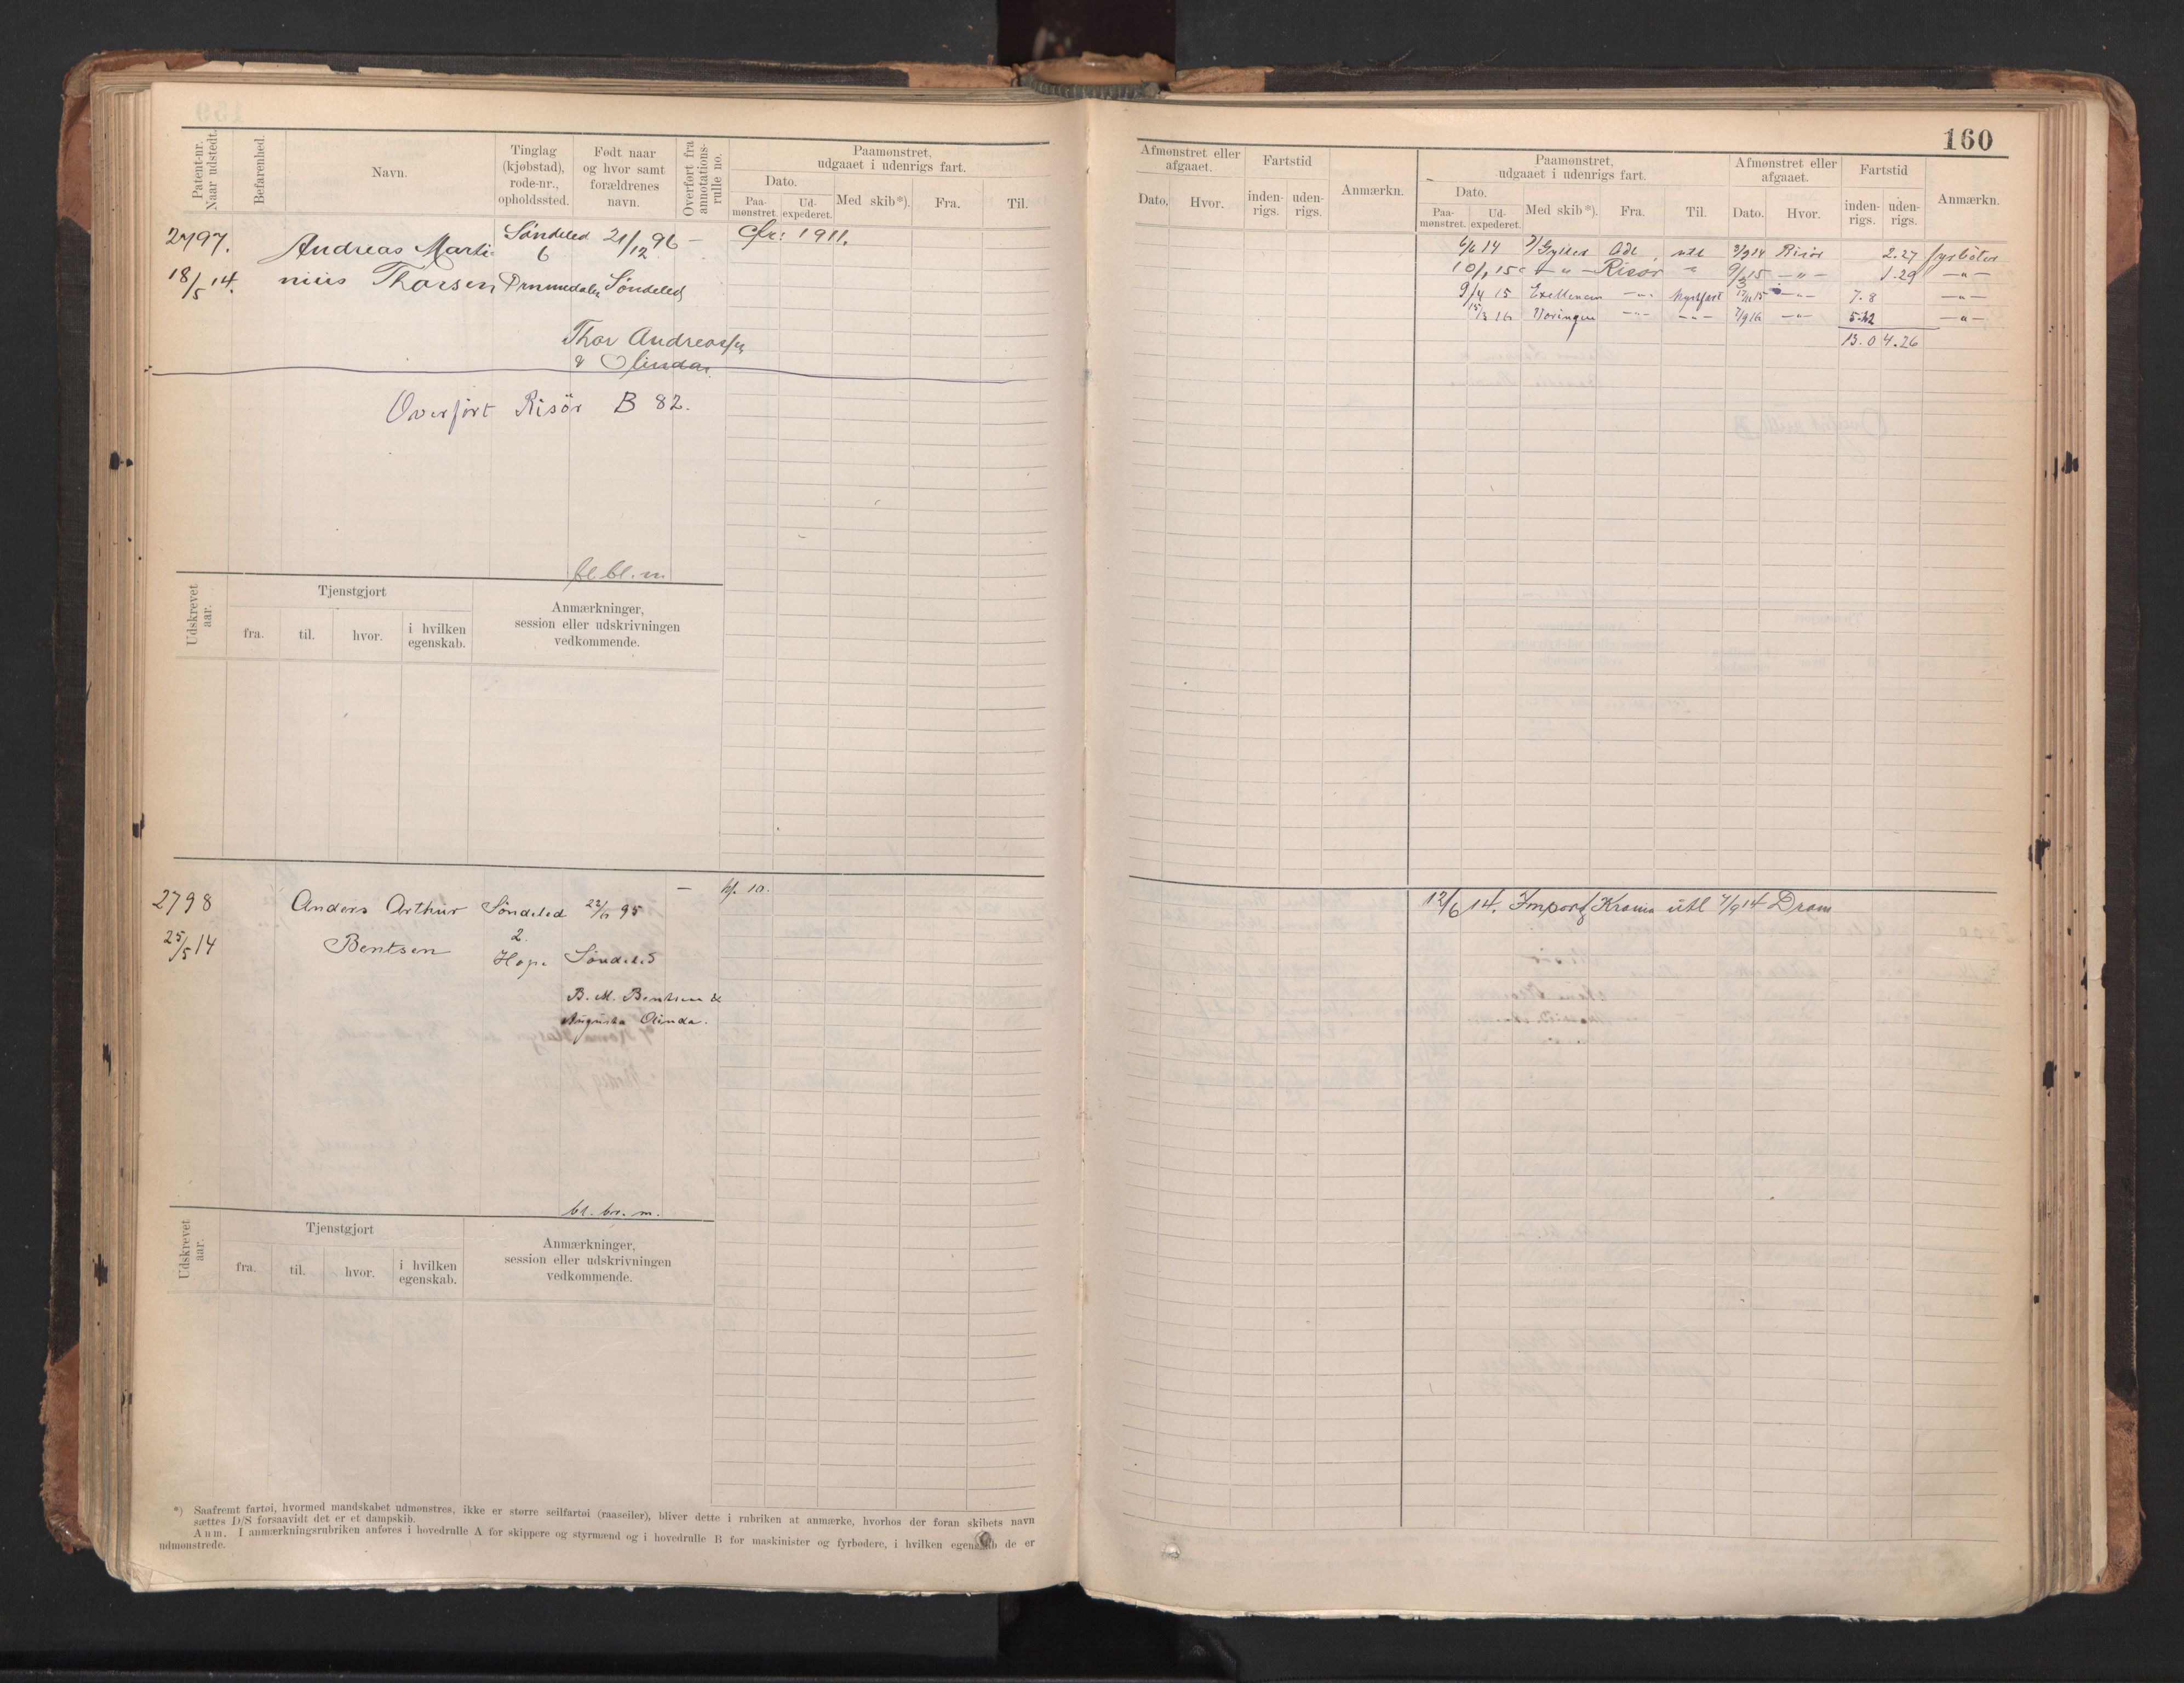 160
Patent-nr.
Naar udstedt.
Befarenhed.
Navn.
Tinglag
(kjøbstad),
rode-nr.,
opholdssted.
Født naar
og hvor samt
forældrenes
navn.
Overført fra
annotations-
rulle no.
Paamønstret,
udgaaet i udenrigs fart.
Dato.
Paa-
mønstret.
Ud-
expederet.
Med skib*).
Fra.
Til.
Afmønstret eller
afgaaet.
Dato.
Hvor.
Fartstid
inden-
rigs.
uden-
rigs.
Anmærkn.
Paamønstret,
udgaaet i udenrigs fart.
Dato.
Paa-
mønstret.
Ud-
expederet.
Med skib*).
Fra.
Til.
Afmønstret eller
afgaaet.
Dato.
Hvor.
Fartstid
inden-
rigs.
uden-
rigs.
Anmærkn.
2797. Andreas Marti- Søndeled 21/12 96 —
18/5 14. nius Thorsen 6 Søndeled
Thor Andreassen
& Olinda.
Cfr: 1911.
6/6 14 Adl. utl 3/9 14 Risør 2.27 fyrbøter
10/1 15 — „ — Risør „ 9/3 15 — „ — 1.29 — „ —
9/4 15 — „ — 7.8 — „ —
16 — „ — — „ — 7/9 16 — „ — — „ —
13.0 4.26
Overført Risör B 82.
bl. bl. m.
Udskrevet
aar.
Tjenstgjort
fra.
til.
hvor.
i hvilken
egenskab.
Anmærkninger,
session eller udskrivningen
vedkommende.
2798 Anders Arthur Søndeled 95 — kf. 10.
25/5 14 Bentsen 2
Hope Søndeled
B. M. Bentsen &
Augusta Olinda.
12/6 14. Import Krania utl 7/9 14 Dram
bl. br. m.
Udskrevet
aar.
Tjenstgjort
fra.
til.
hvor.
i hvilken
egenskab.
Anmærkninger,
session eller udskrivningen
vedkommende.
*) Saafremt fartøi, hvormed mandskabet udmønstres, ikke er større seilfartøi (raaseiler), bliver dette i rubriken at anmærke, hvorhos der foran skibets navn
sættes D/S forsaavidt det er et dampskib.
Anm. I anmærkningsrubriken anføres i hovedrulle A for skippere og styrmænd og i hovedrulle B for maskinister og fyrbødere, i hvilken egenskab de er
udmønstrede.